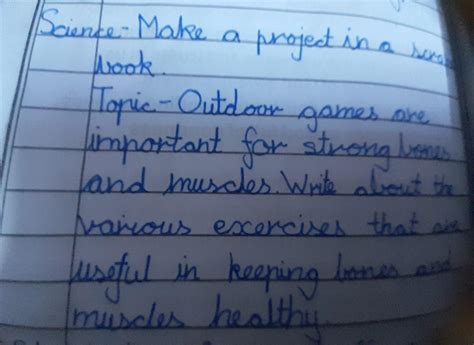 Science - Make a project in a scrap
book.
Topic - Outdoor games are
important for strong bones
and muscles. Write about the
various exercises that are
useful in keeping bones and
muscles healthy.